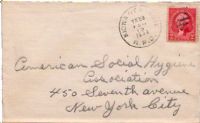 American Social Hygiene
Association
450 Seventh avenue
New York City